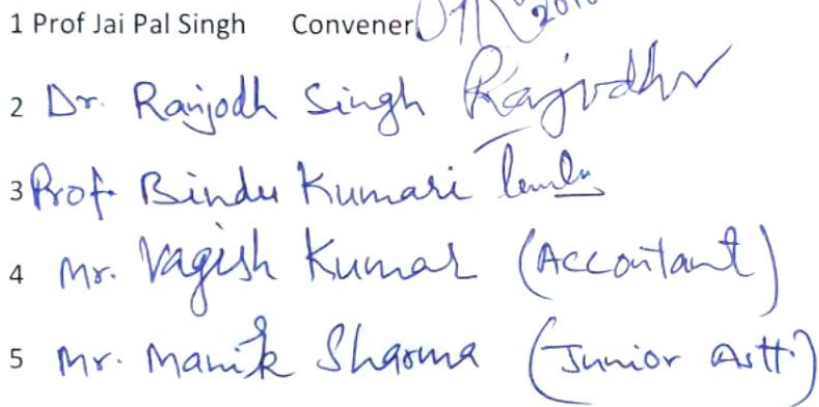 1 Prof Jai Pal Singh Convener
2 Dr. Ranjodh Singh Ranjodhr
3 Prof. Bindu Kumari
4 Mr. Vagish Kumar (Accontant)
5 Mr. Manik Sharma (Junior Astt.)